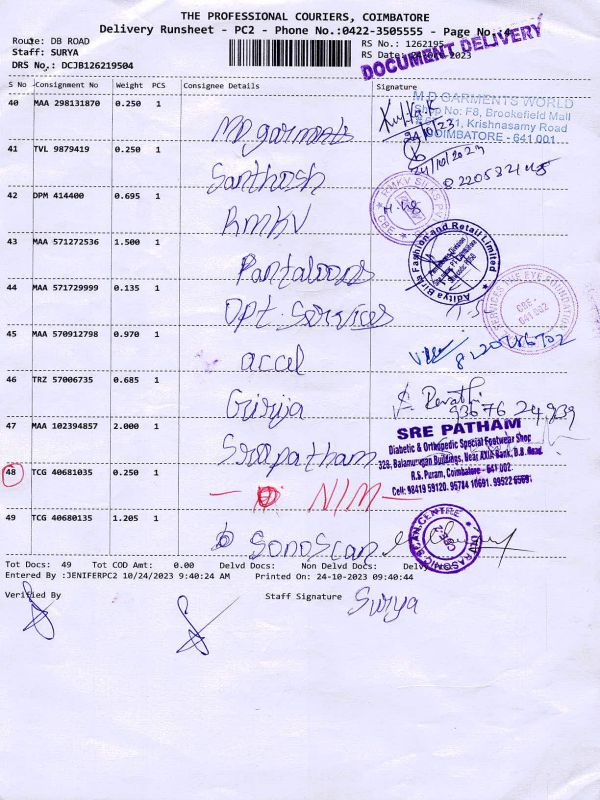 THE PROFESSIONAL COURIERS, COIMBATORE
Delivery Runsheet - PC2 - Phone No.:0422-3505555 - Page No.
Route: DB ROAD
Staff: SURYA
DRS No.: DCJB126219504
RS No.: 1262195
RS Date: 2023
DOCUMENT DELIVERY
S No Consignment No Weight PCS Consignee Details Signature
M D GARMENTS WORLD
Shop No: F8, Brookefield Mall
Krishnasamy Road
COIMBATORE - 641 001.
40 MAA 298131870 0.250 1 MD garments
24/10/23
41 TVL 9879419 0.250 1 Santhosh
24/10/2023
42 DPM 414400 0.695 1 RMKV
RMKV SILKS
CBE
43 MAA 571272536 1.500 1 Pantaloons
Aditya Birla Fashion and Retail Limited
44 MAA 571729999 0.135 1 Opt. Services
SERVICES THE EYE FOUNDATION
CBE
641 002
45 MAA 570912798 0.970 1 accel
46 TRZ 57006735 0.685 1 Girija
Revathi
93676 24839
47 MAA 102394857 2.000 1 Sreepatham
SRE PATHAM
Diabetic & Orthopedic Special Footwear Shop
328, Balamurugan Buildings, Near AXIA Bank, D.B. Road,
R.S. Puram, Coimbatore - 641 002.
Cell: 98419 59120, 95784 10691, 99522 65691
48 TCG 40681035 0.250 1 NIM
49 TCG 40680135 1.205 1 Sonoscan
ULTRASONIC SCAN CENTRE
Tot Docs: 49 Tot COD Amt: 0.00 Delvd Docs: Non Delvd Docs: Delv
Entered By :JENIFERPC2 10/24/2023 9:40:24 AM Printed On: 24-10-2023 09:40:44
Verified By Staff Signature Surya